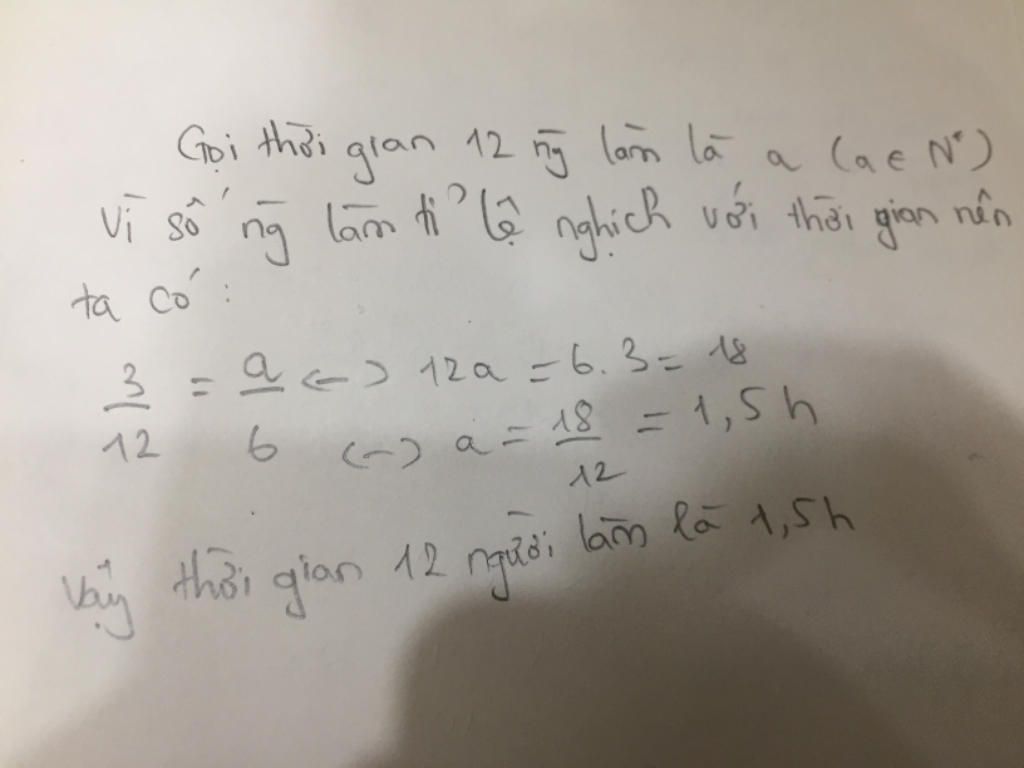 Gọi thời gian 12 ng̃ làm là a (a ∈ N*)
Vì số ng̃ làm tỉ lệ nghịch với thời gian nên
ta có :
3/12 = a/6 <-> 12a = 6.3 = 18
<-> a = 18/12 = 1,5h
Vậy thời gian 12 người làm là 1,5h